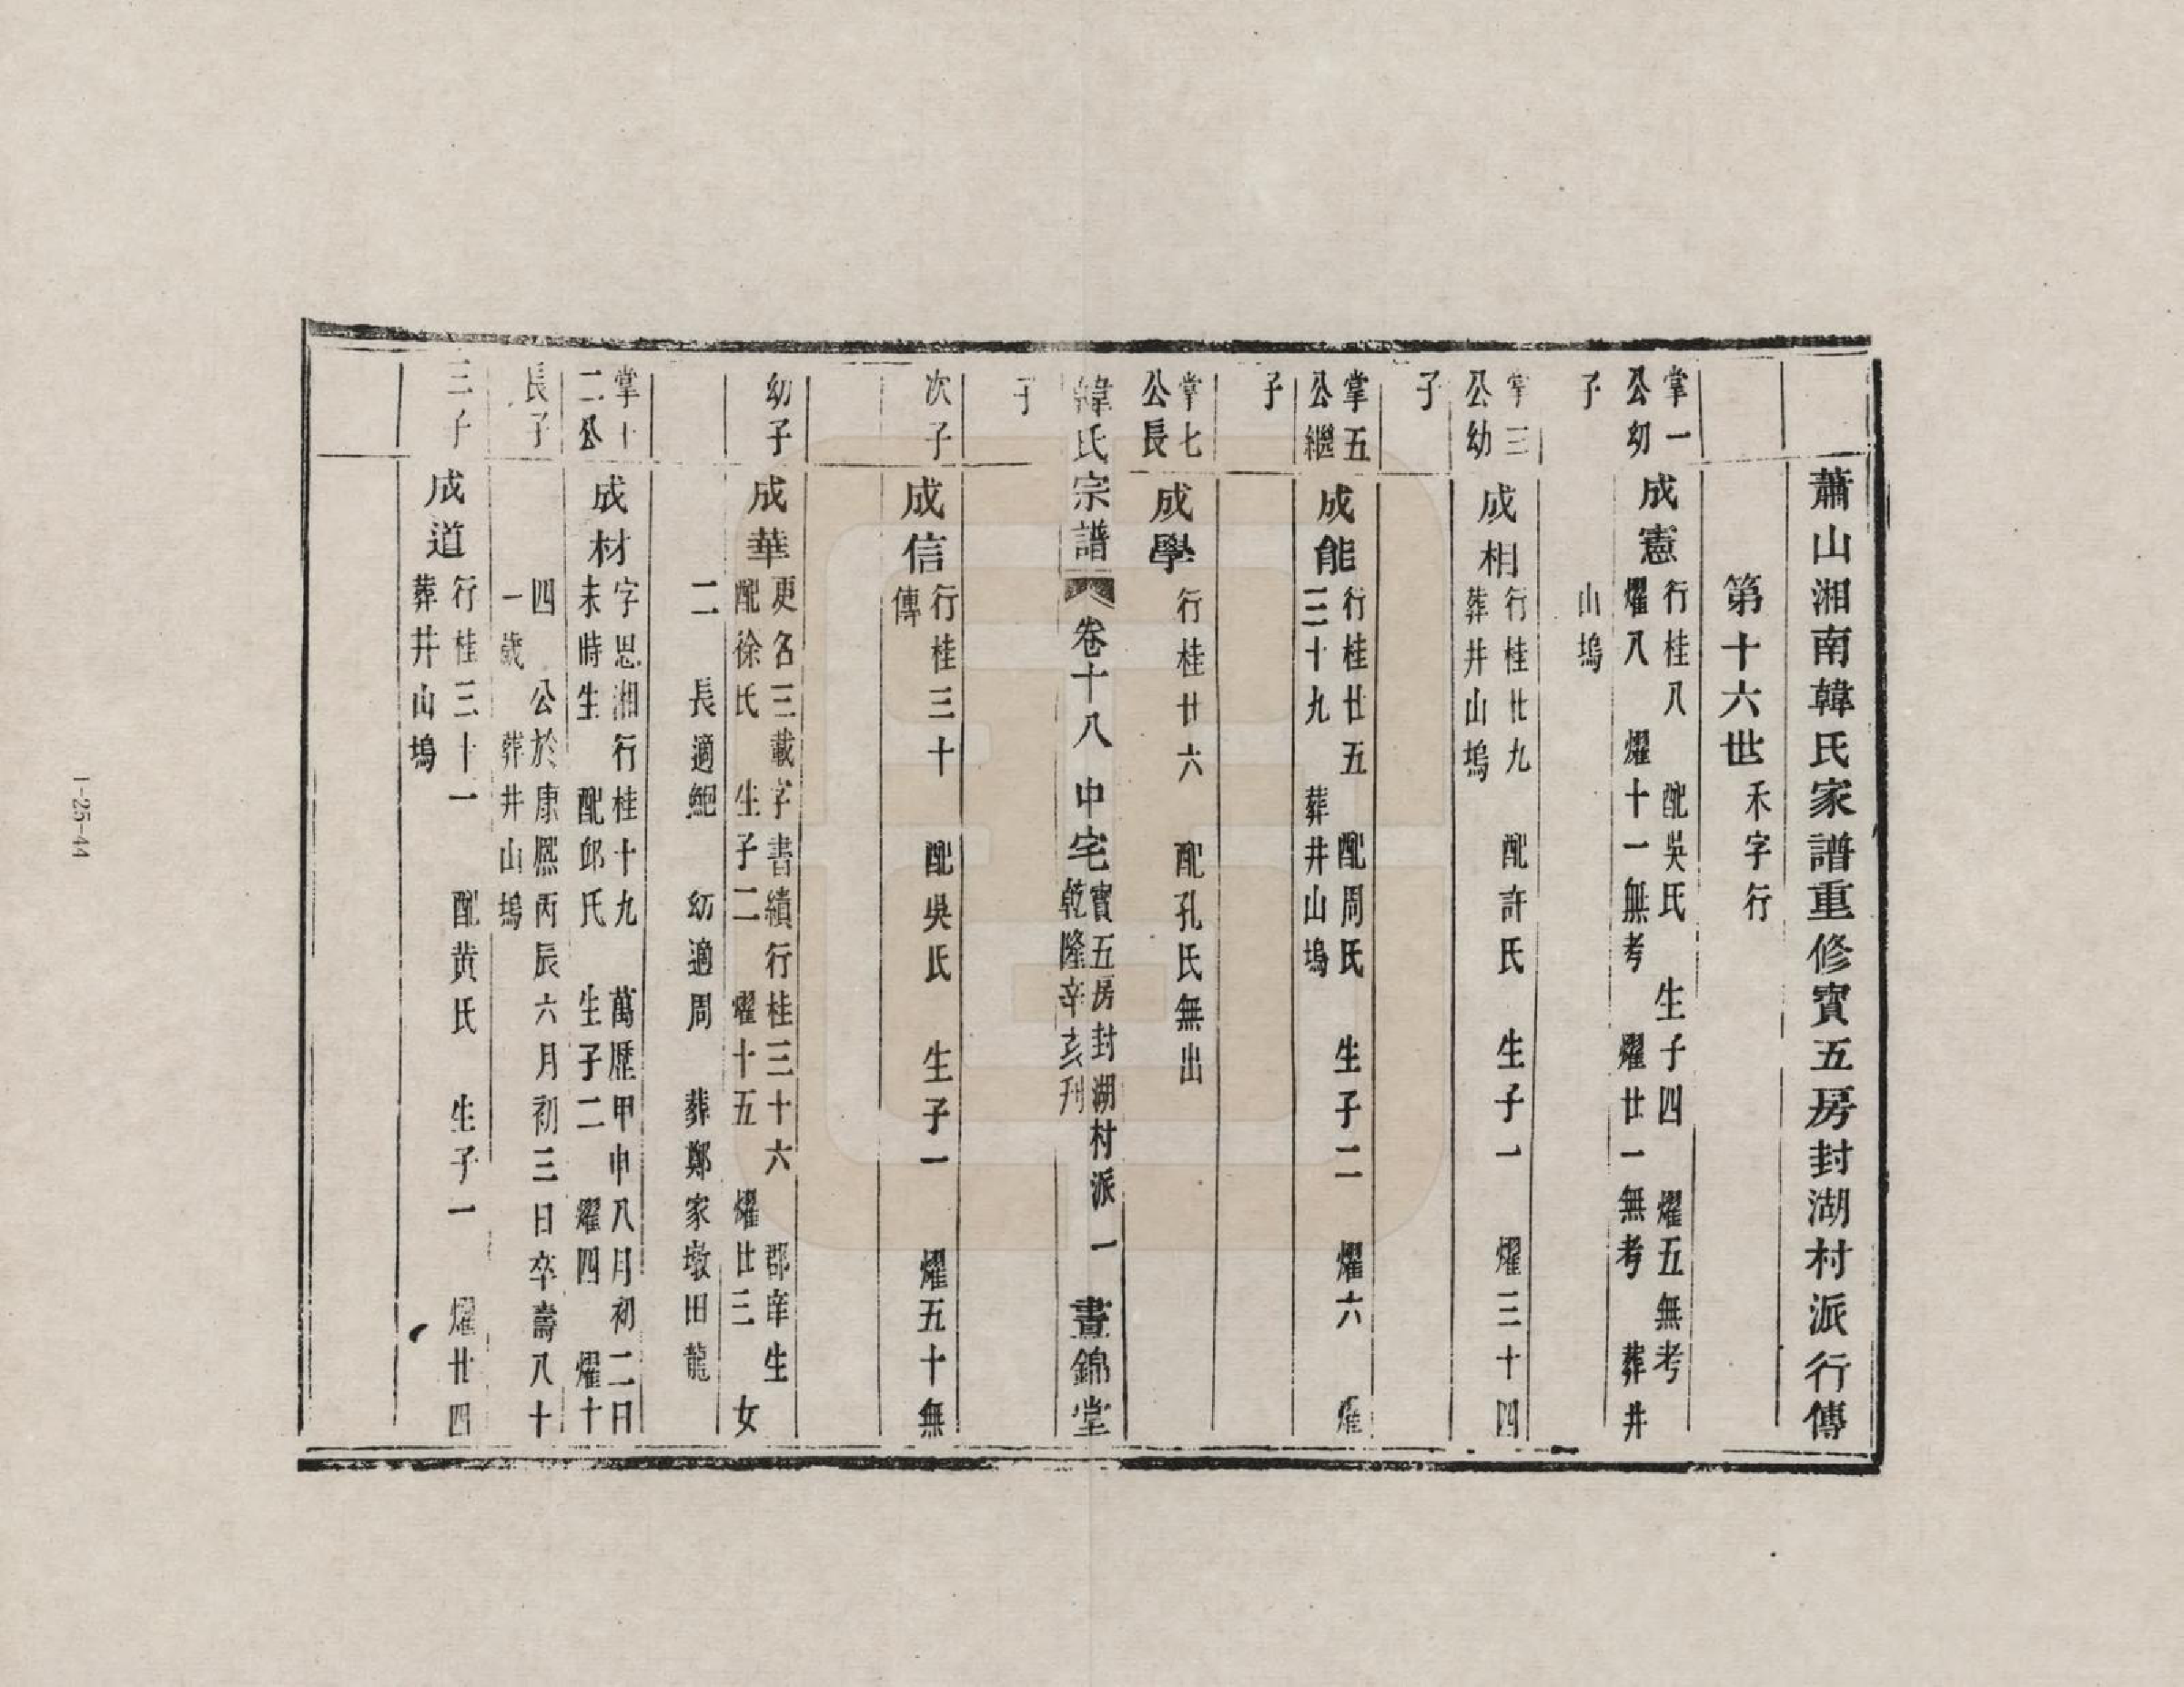 蕭山湘南韓氏家譜重修實五房封湖村派行傳
第十六世
禾字行
掌一
公幼
子
成憲
行桂八 配吳氏 生子四 燿五無考
燿八 燿十一無考 燿廿一無考 葬井
山塢
掌三
公幼
子
成相
行桂廿九 配許氏 生子一 燿三十四
葬井山塢
掌五
公繼
子
成能
行桂廿五 配周氏 生子二 燿六 燿
三十九 葬井山塢
掌七
公長
子
成學
行桂廿六 配孔氏無出
韓氏宗譜 卷十八 中宅
實五房封湖村派 一
乾隆辛亥刊
晝錦堂
次子
成信
行桂三十 配吳氏 生子一 燿五十無
傳
幼子
成華
更名三載字書績行桂三十六 郡庠生
配徐氏 生子二 燿十五 燿廿三 女
二 長適鮑 幼適周 葬鄭家墩田龍
掌十
二公
長子
成材
字思湘行桂十九 萬歷甲申八月初二日
未時生 配邱氏 生子二 燿四 燿十
四 公於康熈丙辰六月初三日卒壽八十
一歲 葬井山塢
三子
成道
行桂三十一 配黃氏 生子一 燿廿四
葬井山塢
1-25-44